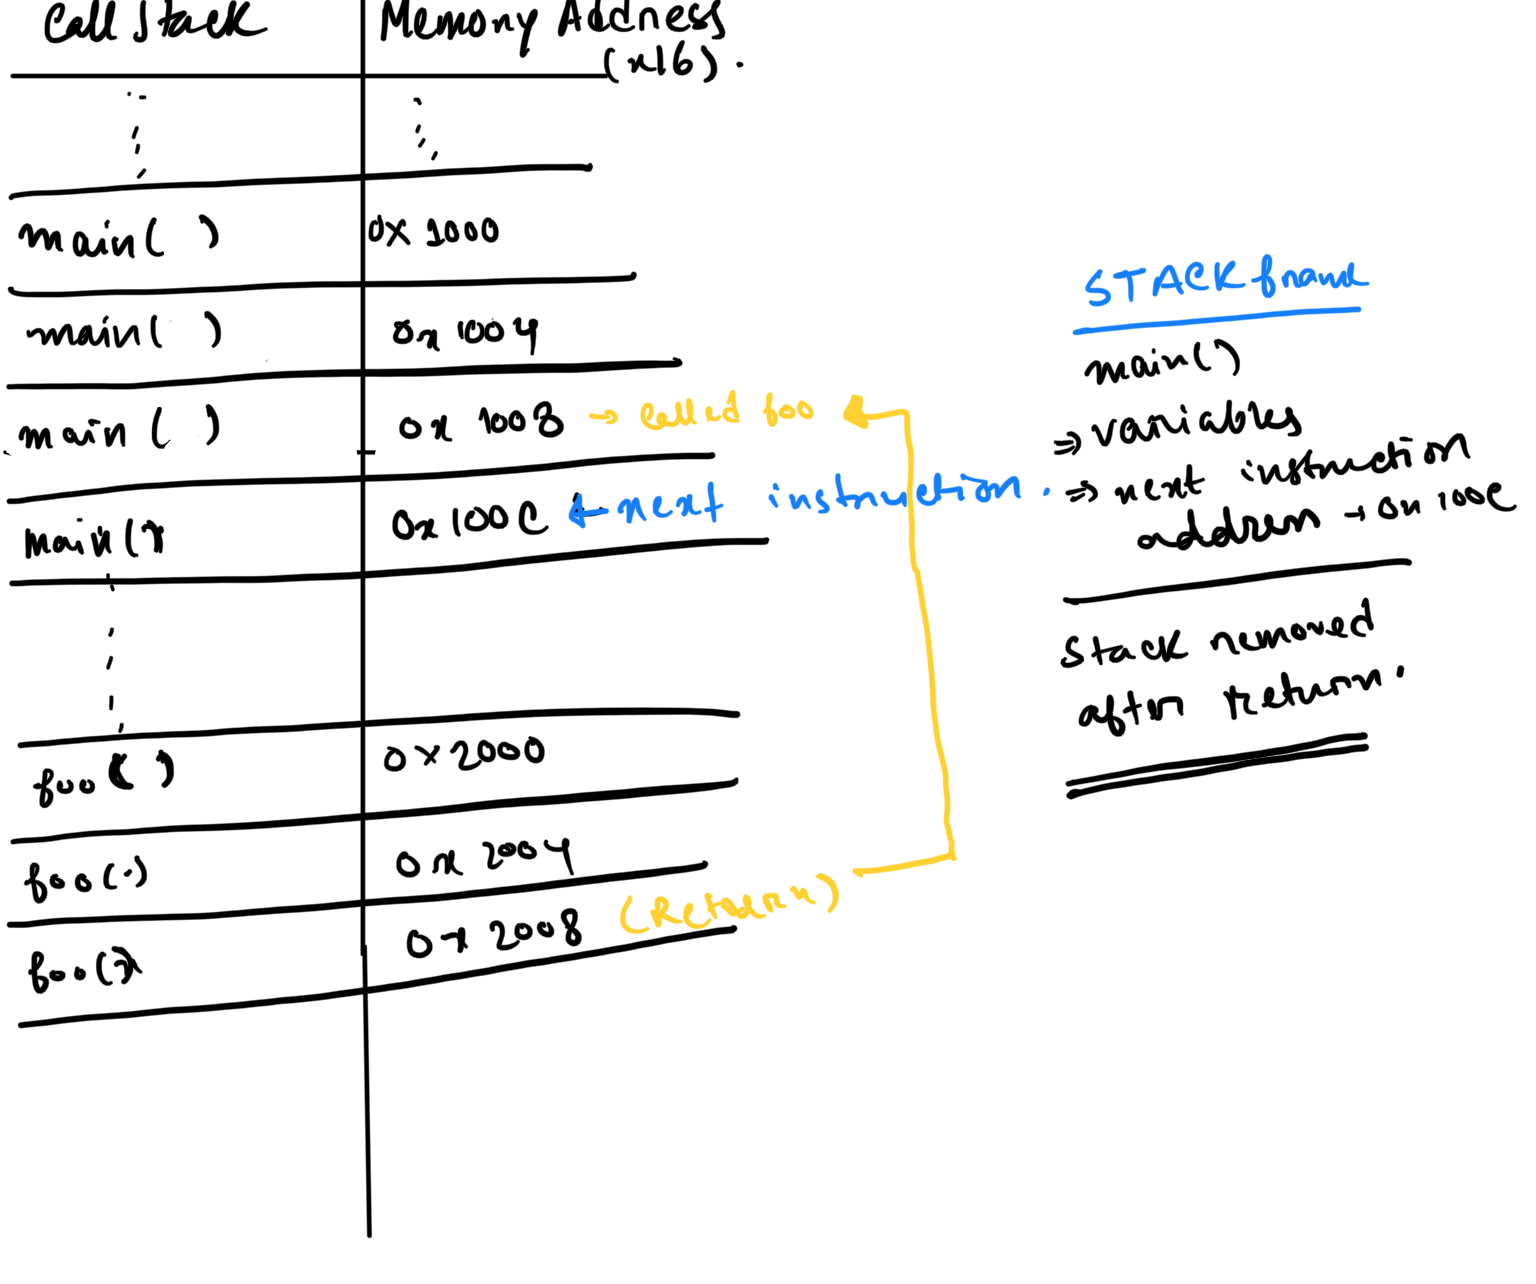 Call Stack Memory Address
(x16).
main( ) 0x 1000
main( ) 0x 1004
main ( ) 0x 1008 → called foo
main() 0x 100C ← next instruction.
foo( ) 0x2000
foo() 0x 2004
foo() 0x 2008 (Return)
STACK frame
main()
⇒ variables
⇒ next instruction
address → 0x 100C
Stack removed
after return.